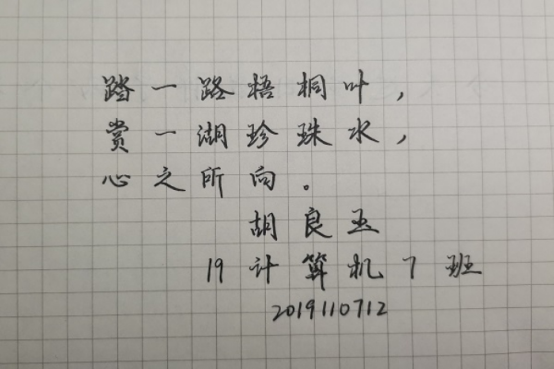 踏一路梧桐叶，
赏一湖珍珠水，
心之所向。
胡良玉
19计算机7班
2019110712